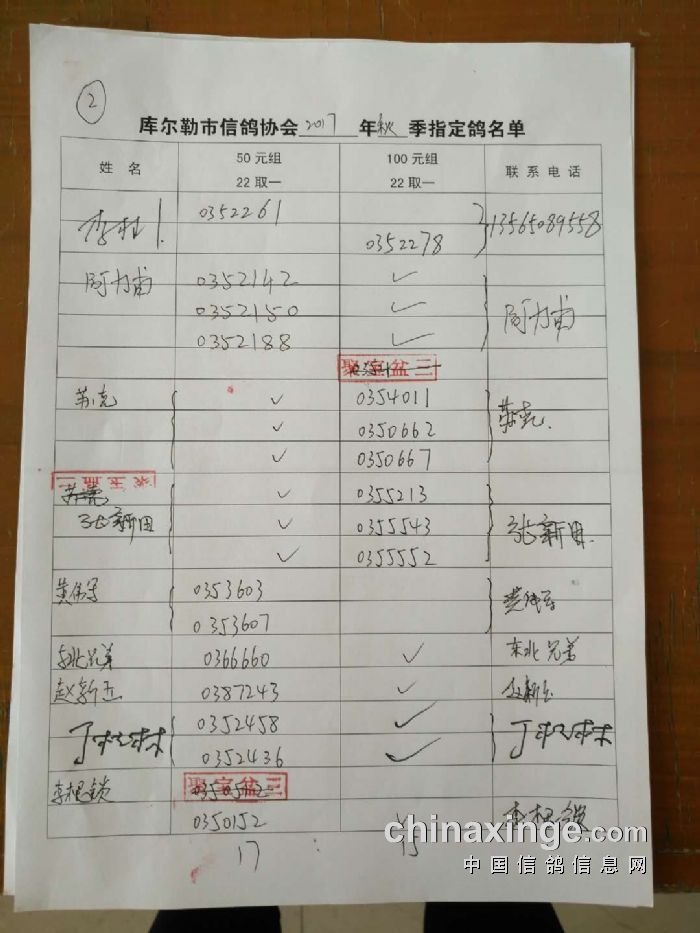 2
库尔勒市信鸽协会 2017 年 秋 季指定鸽名单
姓 名 50元组 22取一 100元组 22取一 联系电话
0352261
0352278 13565089558
阿力甫 0352142 ✓ 阿力甫
0352150 ✓
0352188 ✓
聚宝盆三
苏克 ✓ 0354011 苏克
✓ 0350662
✓ 0350667
✓ 0355213
张新田 ✓ 0355543 张新田
✓ 0355552
黄伟军 0353603 黄伟军
0353607
东北兄弟 0366660 ✓ 东北兄弟
赵新玉 0387243 ✓
0352458 ✓
0352436 ✓
李根锁 聚宝盆三
0350152 ✓ 李根锁
17 15
chinaxinge.com
中国信鸽信息网